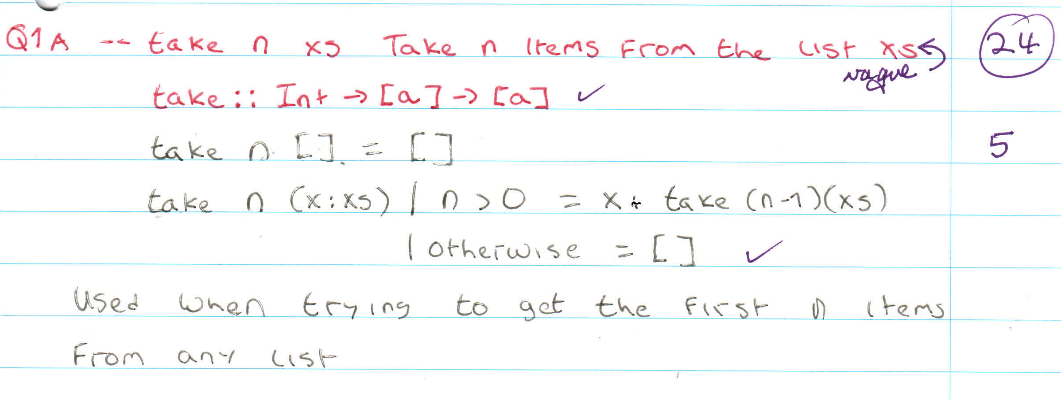 Q1A -- take n xs Take n items from the list xs 24
vague
take :: Int -> [a] -> [a] ✓
take n [] = [] 5
take n (x:xs) | n > 0 = x + take (n-1)(xs)
| otherwise = [] ✓
Used when trying to get the first n items
from any list